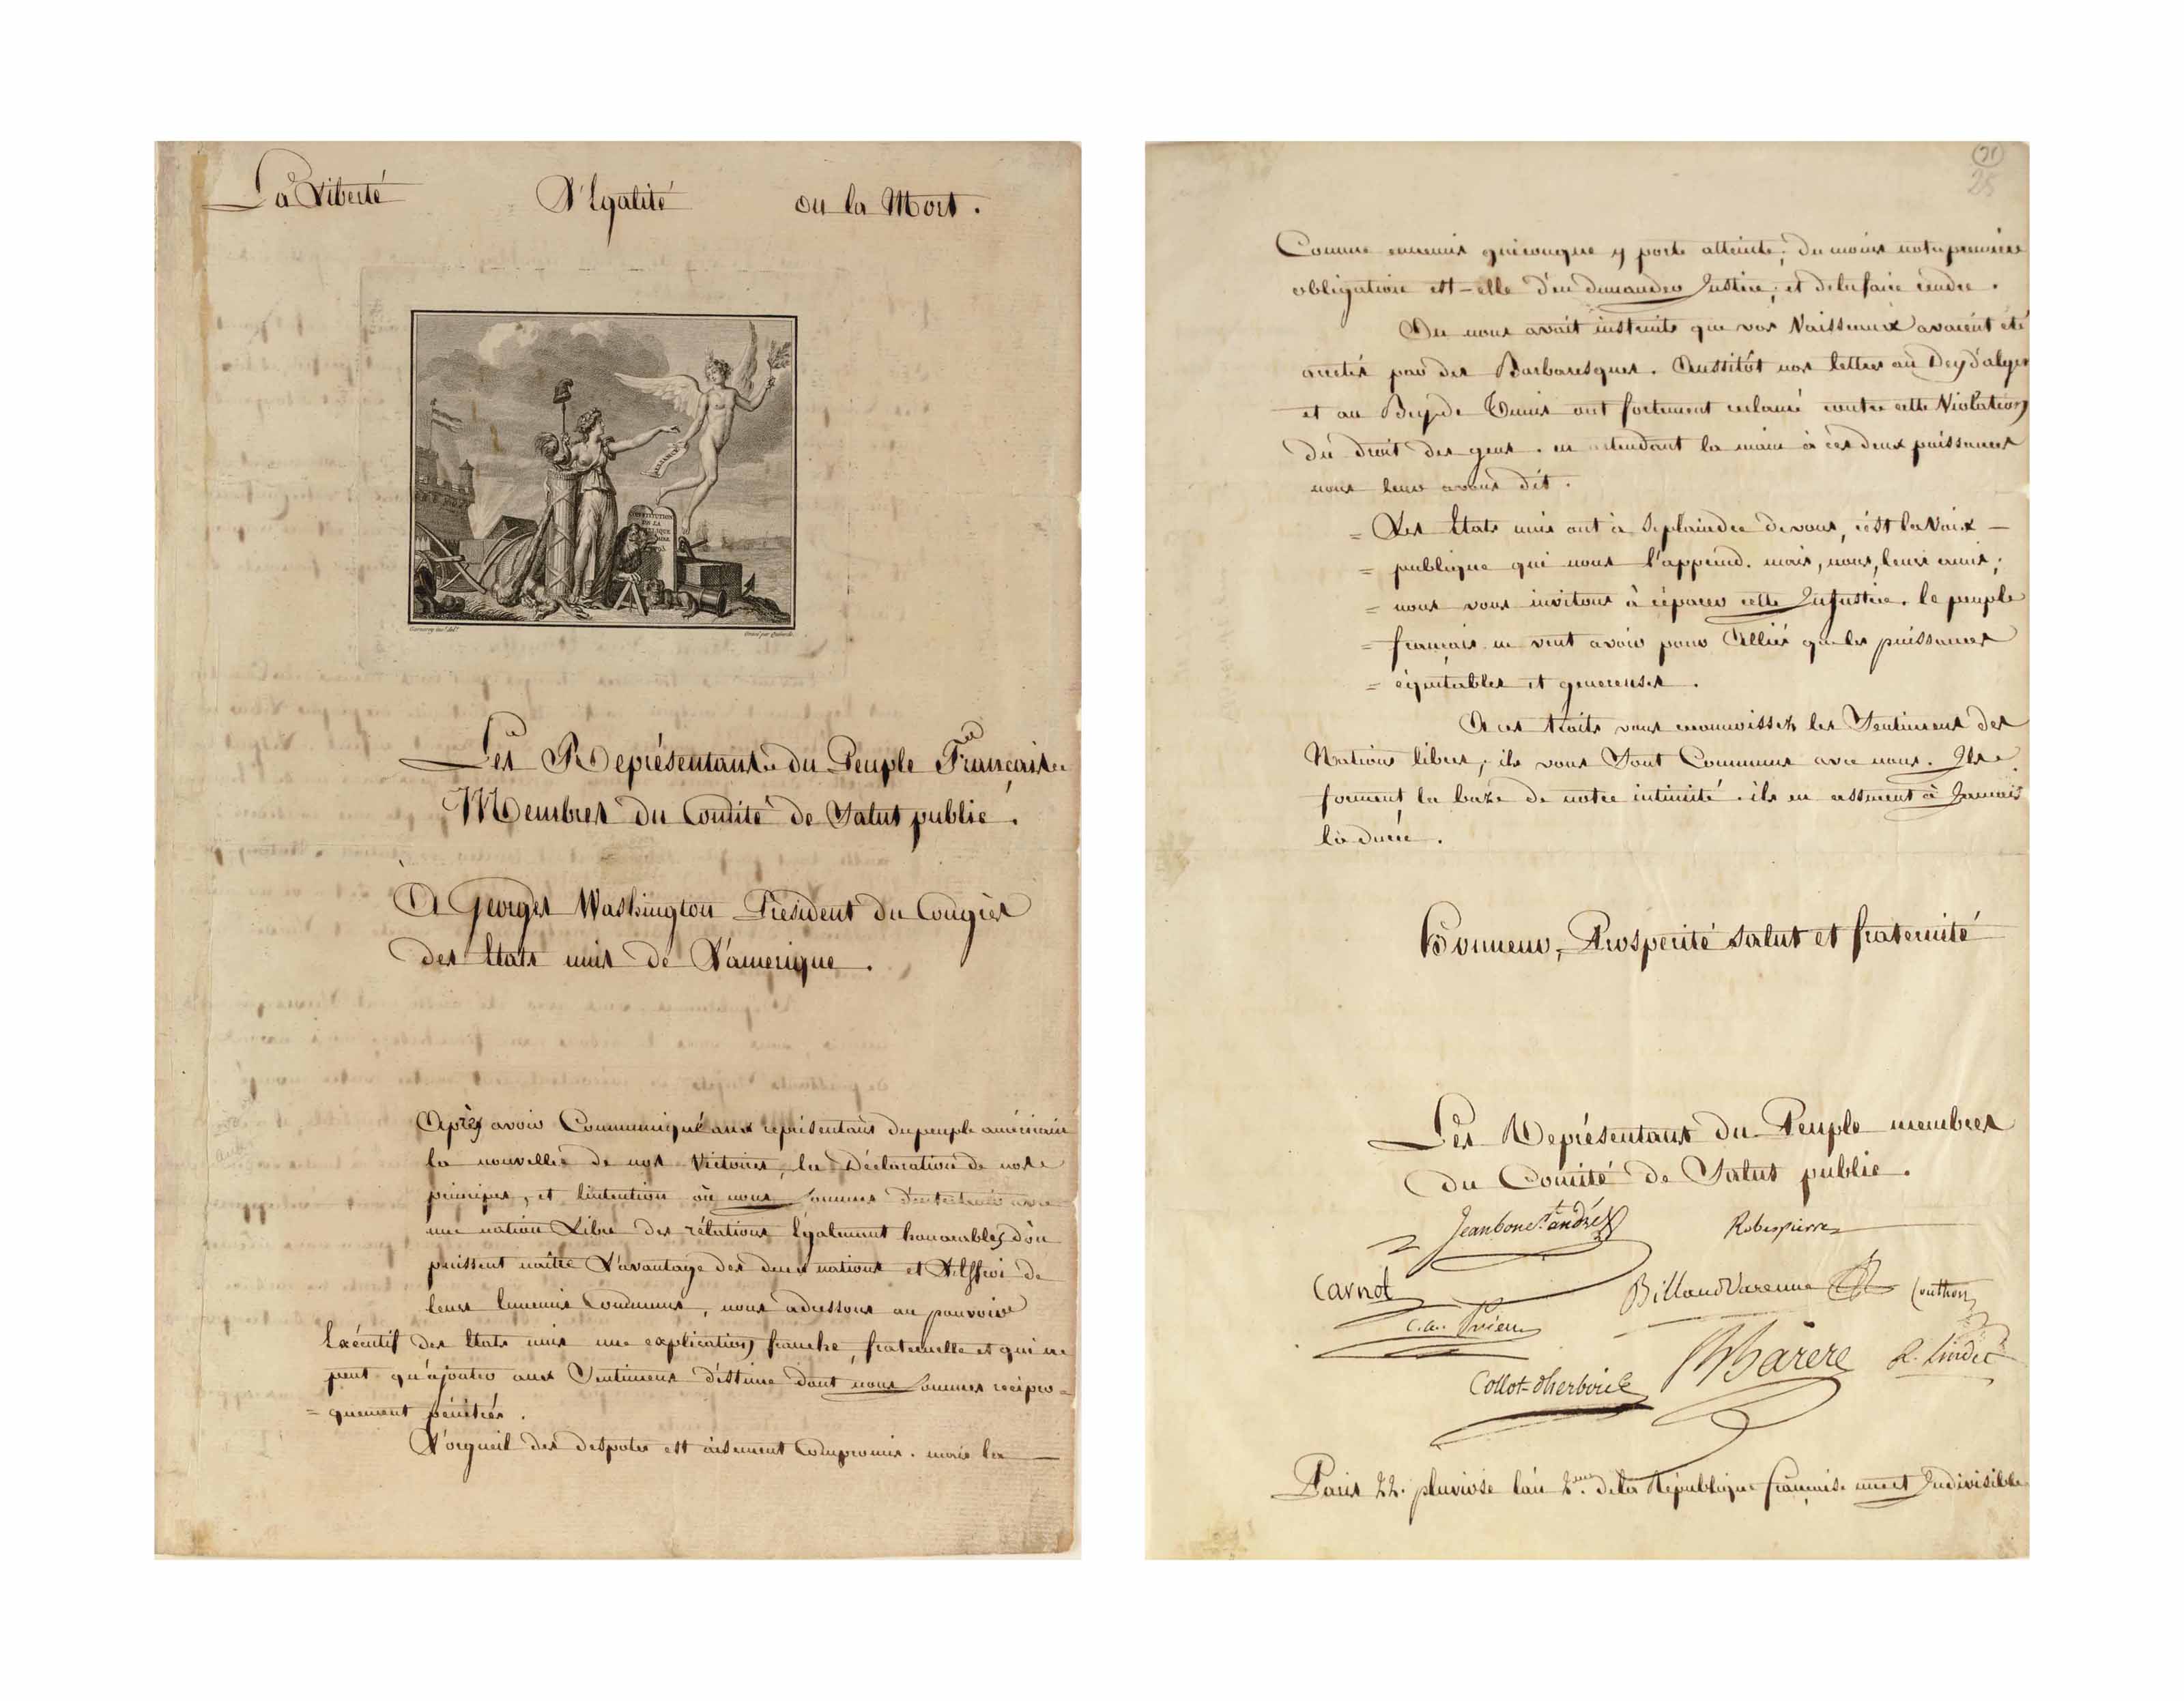 La Liberté L'Egalité ou la Mort.
ALLIANCE
CONSTITUTION
DE LA
Les Représentants du Peuple Français
Membres du Comité de Salut public.
A Georges Washington Président du Congrès
des Etats unis de L'amerique.
Après avoir Communiqué aux représentans du peuple américain
la nouvelle de nos Victoires, la Déclaration de nos
principes, et l'intention où nous sommes d'entretenir avec
une nation Libre des rélations Egalement honorables, d'où
puissent naître L'avantage des deux nations et L'Effroi de
leurs Ennemis Communs, nous adressons au pouvoir
Exécutif des Etats unis une explication franche, fraternelle et qui ne
peut qu'ajouter aux Sentimens d'éstime dont nous sommes recipro=
=quement pénétrés.
L'orgueil des despotes est aisement compromis. mais la
(21)
25
Comme ennemis quiconque y porte atteinte; du moins notre premiere
obligation est-elle d'en demander Justice, et de la faire rendre.
On nous avait instruits que vos Vaisseaux avaient été
arretés par des Barbaresques. Aussitôt nos lettres au Dey d'alger
et au Bey de Tunis ont fortement reclamé contre cette Violation
du droit des gens. en tendant la main à ces deux puissances
nous leur avons dit.
= Les Etats unis ont à se plaindre de vous, c'est la Voix
= publique qui nous l'apprend. mais, nous, leurs amis,
= nous vous invitons à réparer cette Injustice. le peuple
= français ne veut avoir pour Alliés que les puissances
= équitables et genereuses.
A ces traits vous reconnoissez les Sentimens des
Nations libres, ils vous sont Communs avec nous. Ils
forment la baze de notre intimité. ils en assurent à Jamais
la durée.
Honneur, Prosperité Salut et fraternité
Les Représentans du Peuple membres
du Comité de Salut public.
Jeanbon St. andré Robespierre
Carnot Billaud Varenne Couthon
C.a. Prieur
Collot-d'herbois B Barère R. Lindet
Paris 22. pluviôse l'an 2.me de la République française une et Indivisible